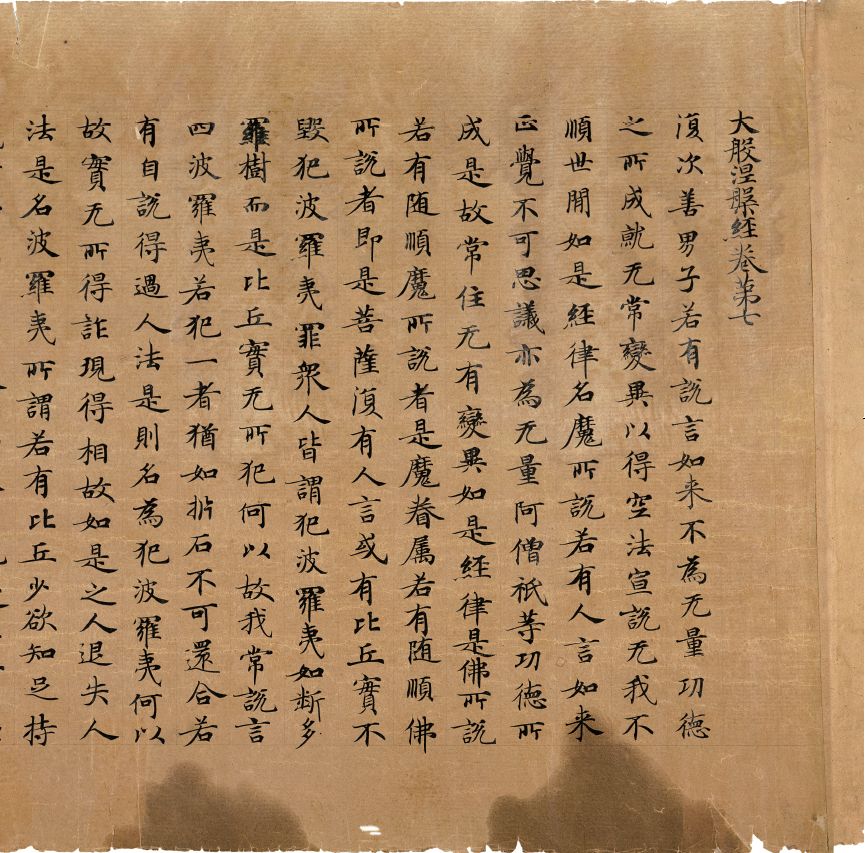 大般涅槃經卷第七
復次善男子若有說言如来不為无量功德
之所成就无常變異以得空法宣說无我不
順世間如是經律名魔所說若有人言如来
正覺不可思議亦為无量阿僧祇等功德所
成是故常住无有變異如是經律是佛所說
若有随順魔所說者是魔眷属若有随順佛
所說者即是菩薩復有人言或有比丘實不
毀犯波羅夷罪衆人皆謂犯波羅夷如断多
羅樹而是比丘實无所犯何以故我常說言
四波羅夷若犯一者猶如㭊石不可還合若
有自說得過人法是則名為犯波羅夷何以
故實无所得詐現得相故如是之人退失人
法是名波羅夷所謂若有比丘少欲知足持